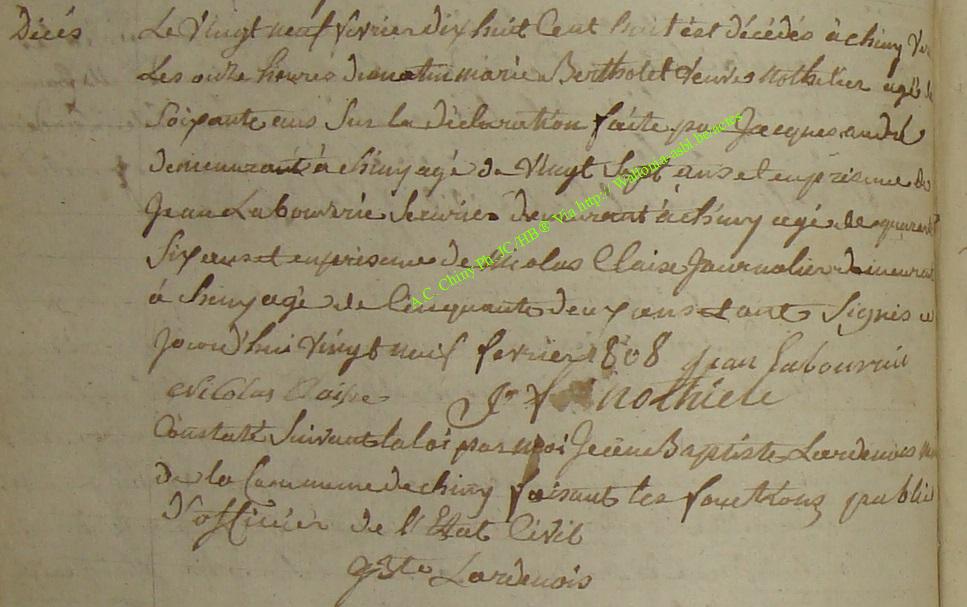 Décés Le Vingt neuf fevrier dix huit Cent huit est décédés à chiny Ver
Les onze heures du matin marie Bertholet veuve Nothilier agé de
Soixante ans Sur la déclaration faite par Jacques andré
demeurant à chiny agé de Vingt Sept ans et en présence de
Jean Labourrie demeurant à chiny agé de quarant
Six ans et en présence de Nicolas Claise Journalier demeurant
à chiny agé de Cinquante deux ans et ont Signés
Jourd'hui Vingt neuf fevrier 1808 jean Labourrie
Nicolas Claise J. nothiele
Constaté Suivant la loi par moi Jean Baptiste Lardenois
de la Commune de chiny faisant les fonctions public
d'officier de l'Etat Civil
Lardenois
A.C. Chiny Ph JC/HB ® Via http:// Wallonia-asbl.be/actes